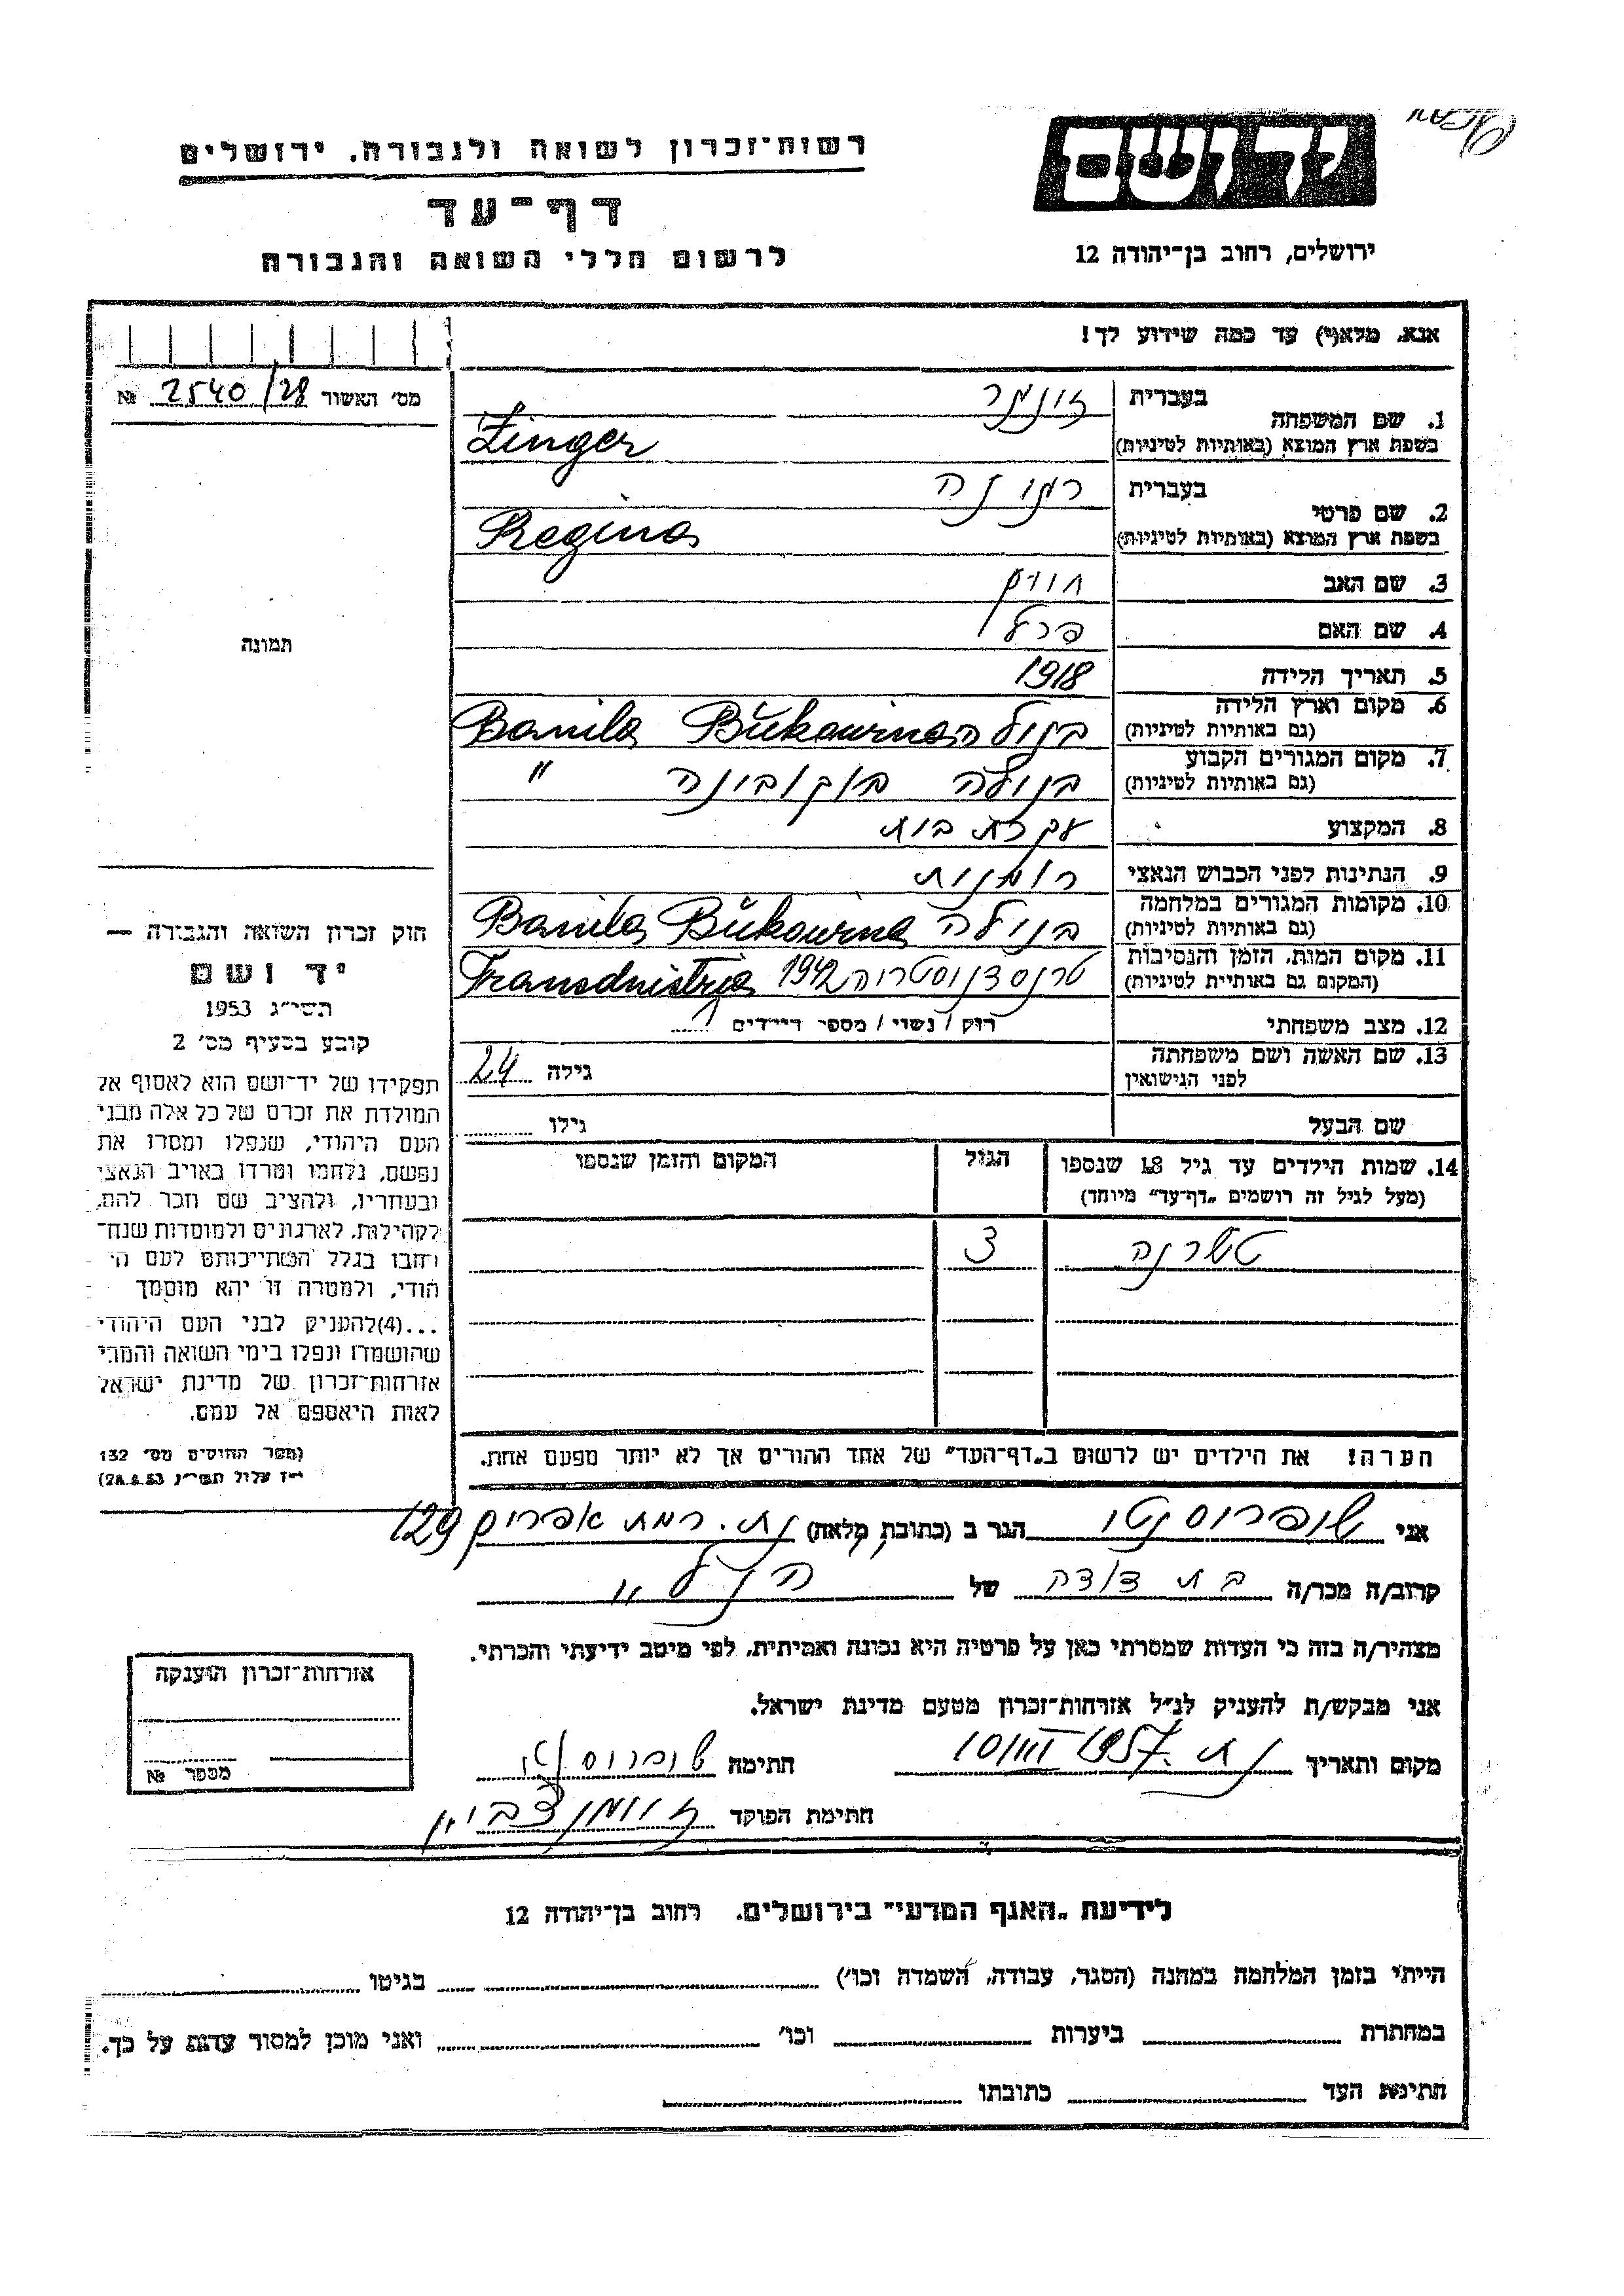 רשות־זכרון לשואה ולגבורה. ירושלים
דף־עד
לרשום חללי השואה והגבורה
יד ושם
ירושלים, רחוב בן־יהודה 12
אנא, מלא(י) עד כמה שידוע לך!
מס׳ האשור 2540/28 №
תמונה
1. שם המשפחה
בעברית זינגר
בשפת ארץ המוצא (באותיות לטיניות) Zinger
2. שם פרטי
בעברית רגינה
בשפת ארץ המוצא (באותיות לטיניות) Regina
3. שם האב חיים
4. שם האם פרל
5. תאריך הלידה 1918
6. מקום וארץ הלידה (גם באותיות לטיניות) בנילה Banila Bukowina
7. מקום המגורים הקבוע (גם באותיות לטיניות) בנילה בוקובינה "
8. המקצוע עקרת בית
9. הנתינות לפני הכבוש הנאצי רומנית
10. מקומות המגורים במלחמה (גם באותיות לטיניות) בנילה Banila Bukowina
11. מקום המות, הזמן והנסיבות (המקום גם באותיות לטיניות) טרנסדניסטריה 1942 Transdnistria
12. מצב משפחתי רוק / נשוי / מספר הילדים 1
13. שם האשה ושם משפחתה לפני הנישואין גילה 24
שם הבעל גילו
14. שמות הילדים עד גיל 18 שנספו (מעל לגיל זה רושמים „דף־עד" מיוחד)
הגיל
המקום והזמן שנספו
3
הערה! את הילדים יש לרשום ב„דף־העד" של אחד ההורים אך לא יותר מפעם אחת.
חוק זכרון השואה והגבורה —
יד ושם
תשי״ג 1953
קובע בסעיף מס׳ 2
תפקידו של יד־ושם הוא לאסוף אל
המולדת את זכרם של כל אלה מבני
העם היהודי, שנפלו ומסרו את
נפשם, נלחמו ומרדו באויב הנאצי
ובעוזריו, ולהציב שם וזכר להם,
לקהילות, לארגונים ולמוסדות שנח־
רבו בגלל השתייכותם לעם הי־
הודי, ולמטרה זו יהא מוסמך
...(4)להעניק לבני העם היהודי
שהושמדו ונפלו בימי השואה והמרי
אזרחות־זכרון של מדינת ישראל
לאות היאספם אל עמם.
(ספר החוקים מס׳ 132
י״ז אלול תשי״ג 28.8.53)
אני הגר ב (כתובת מלאה) נת. רמת אפרים 129
קרוב/ה מכר/ה בת דודה של הנ"ל
מצהיר/ה בזה כי העדות שמסרתי כאן על פרטיה היא נכונה ואמיתית, לפי מיטב ידיעתי והכרתי.
אני מבקש/ת להעניק לנ״ל אזרחות־זכרון מטעם מדינת ישראל.
מקום ותאריך חתימה
חתימת הפוקד
אזרחות־זכרון הוענקה
מספר №
לידיעת „האגף המדעי" בירושלים. רחוב בן־יהודה 12
הייתי בזמן המלחמה במחנה (הסגר, עבודה, השמדה וכו׳) בגיטו
במחתרת ביערות וכו׳ ואני מוכן למסור עדות על כך.
חתימת העד כתובתו